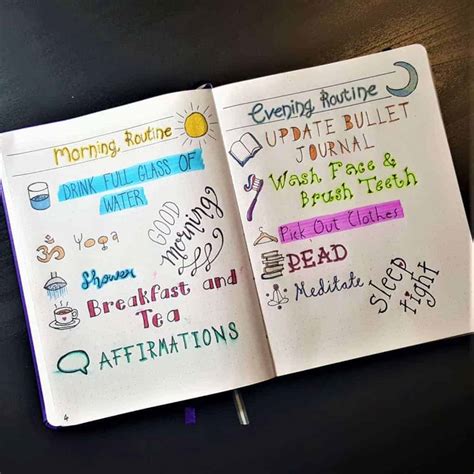 Morning Routine
DRINK FULL GLASS OF
WATER
Yoga
GOOD
Morning
Shower
Breakfast and
Tea
AFFIRMATIONS
4
Evening Routine
UPDATE BULLET
JOURNAL
Wash Face &
Brush Teeth
Pick Out Clothes
READ
Meditate
sleep
tight